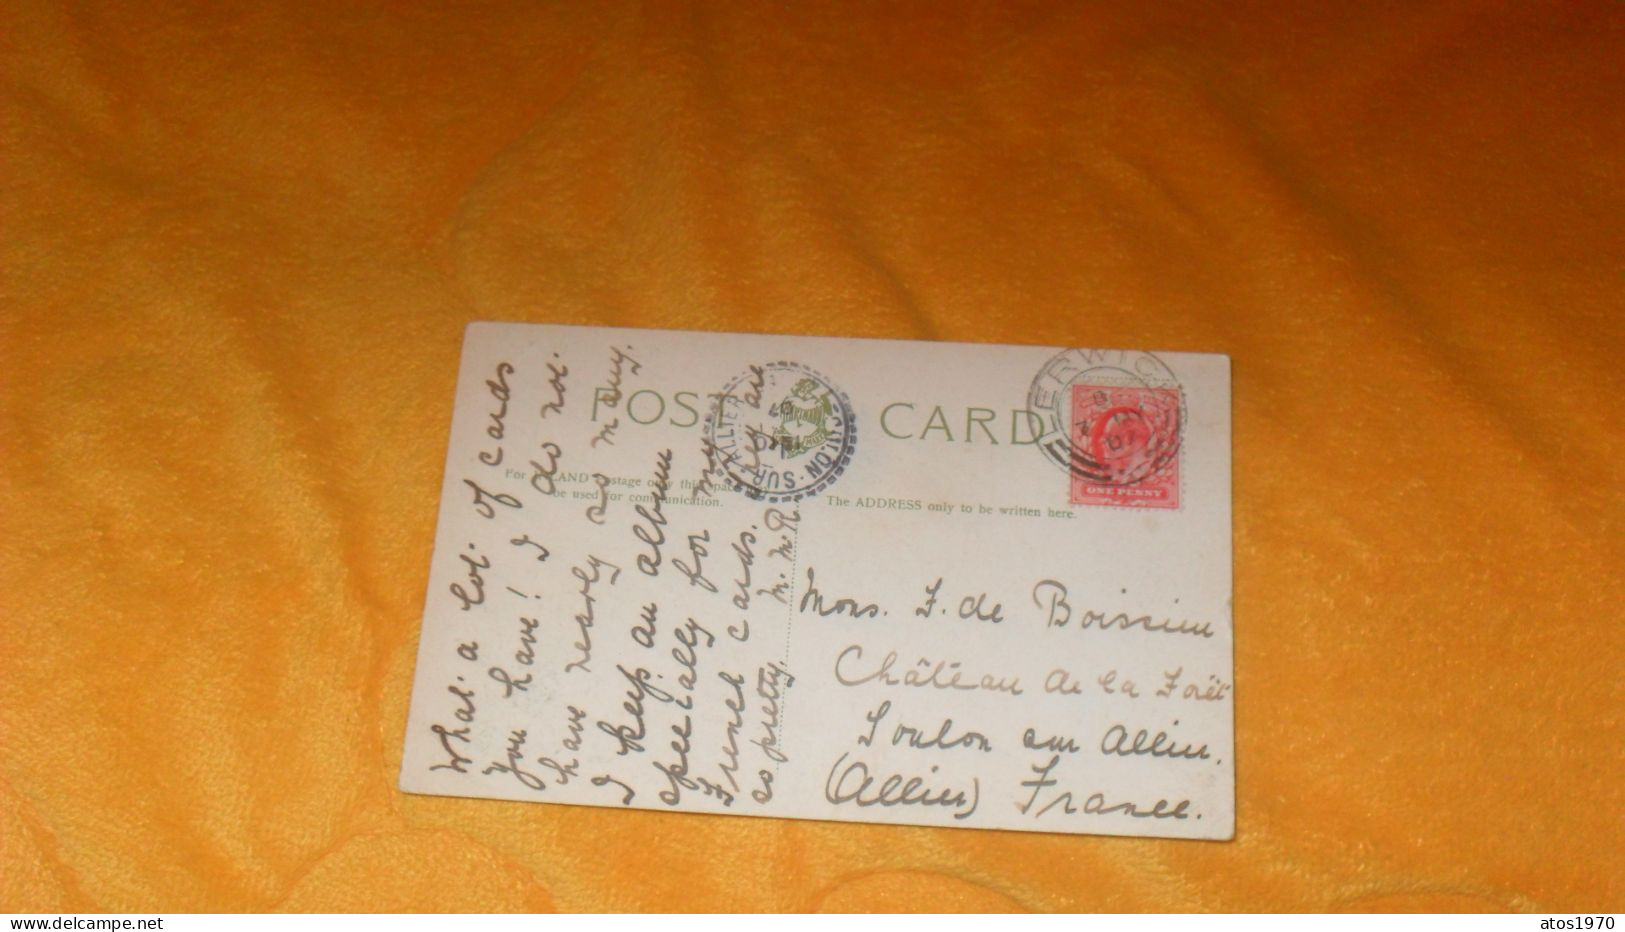 POST CARD
For INLAND Postage only this space may
be used for communication.
The ADDRESS only to be written here.
What a lot of cards
you have! I do not
have nearly so many.
I keep an album
specially for my
French cards. They are
so pretty. M. M. R
Mons. F. de Boissieu
Château de la Forêt
Toulon sur Allier.
(Allier) France.
LERWICK
TOULON-SUR-ALLIER
ONE PENNY
atos1970